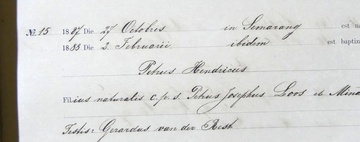 No. 15 1887 Die 27 Octobris in Semarang est n
1888 Die 2 Februarii ibidem est baptiz
Petrus Hendricus
Filius naturalis c.p.s. Petrus Josephus Loos et Mina
Testis: Gerardus van der Besk